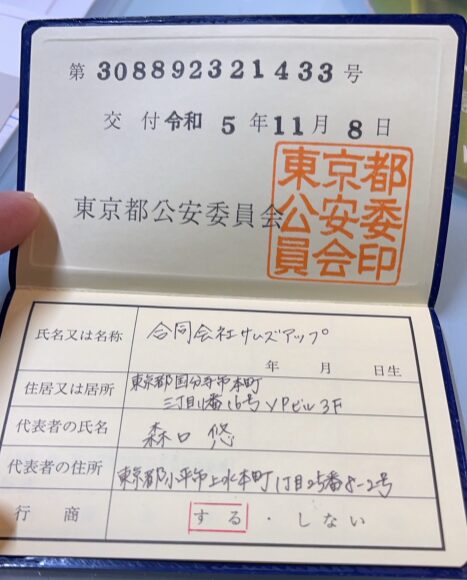 第 308892321433 号
交 付 令和 5 年 11 月 8 日
東京都公安委員会
東京都
公安委
員会印
氏名又は名称 合同会社サムズアップ
年 月 日生
住居又は居所 東京都国分寺市本町
三丁目11番16号 YPビル3F
代表者の氏名 森口 悠
代表者の住所 東京都小平市上水本町1丁目25番8-2号
行 商 する ・ しない